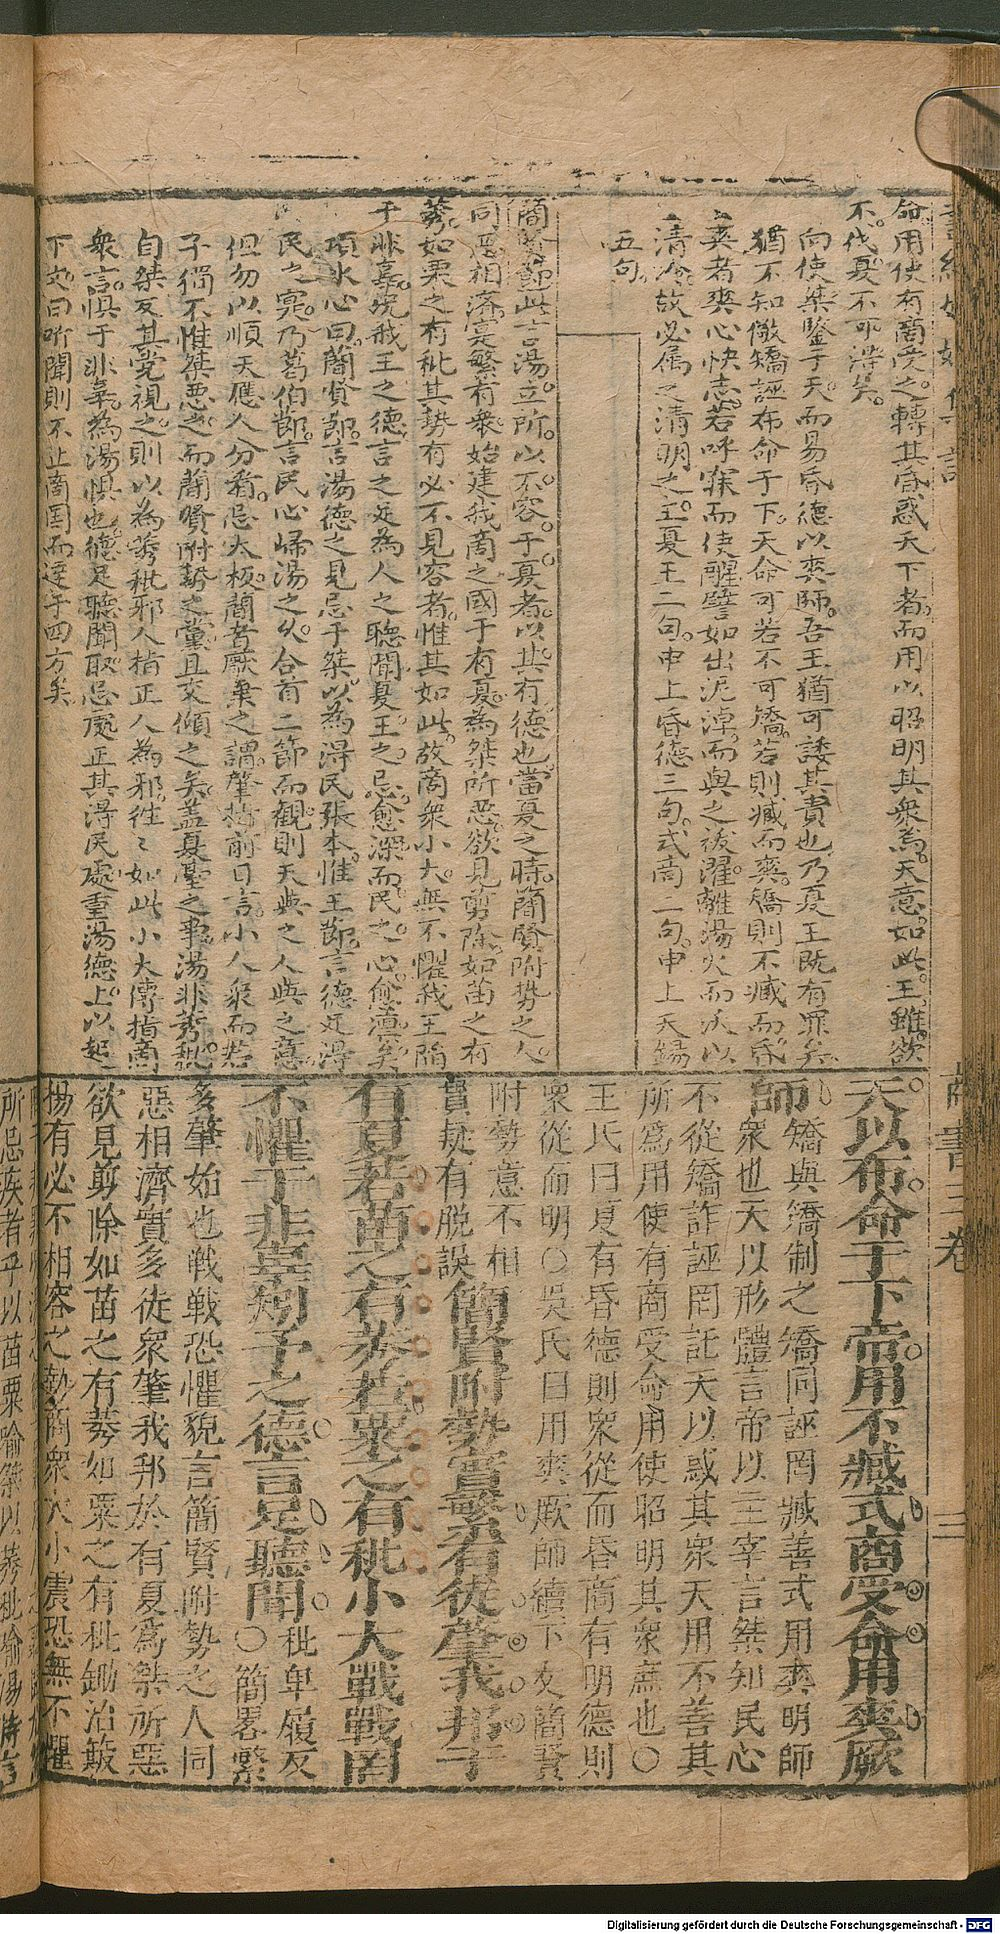 命用使有商受之轉其昏惑天下者而用以昭明其衆焉天意如此王雖欲
不伐夏不可得矣
向使桀鑒于天而易昏德以爽師吾王猶可諉其責也乃夏王既有罪矣
猶不知儆矯誣布命于下天命可若不可矯若則臧而爽矯則不臧而昏
爽者爽心快志若呼寐而使醒譬如出泥淖而與之祓濯離湯火而沃以
清冷故必属之清明之王夏王二句申上昏德三句式商二句申上天錫
五句
簡賢節此言湯立所以不容于夏者以其有德也當夏之時簡賢附勢之人
同惡相濟寔繁有衆始建我商之國于有夏為桀所惡欲見剪除如苗之有
莠如粟之有秕其勢有必不見容者惟其如此故商衆小大無不懼我王陷
于非辜况我王之德言之足為人之聽聞夏王之忌愈深而民之心愈凛矣
項水心曰簡賢節言湯德之見忌于桀以為得民張本惟王節言德足得
民之寔乃葛伯節言民心歸湯之久合首二節而觀則天與之人與之意
但勿以順天應人分看忌太板簡者厭棄之謂肇指前日言小人衆而君
子獨不惟桀惡之而簡賢附勢之黨且交傾之矣蓋夏臺之事湯非莠秕
自桀及其党視之則以為莠秕邪人指正人為邪徃〻如此小大傳指商
衆言惧于非辜為湯惧也德足聽聞取忌處正其得民處重湯德上以起
下文曰听聞則不止商国而達于四方矣
商書三卷
三
天以布命于下帝用不臧式商受命用爽厥
師
矯與矯制之矯同誣罔臧善式用爽明師
衆也天以形體言帝以主宰言桀知民心
不從矯詐誣罔託天以惑其衆天用不善其
所為用使有商受命用使昭明其衆庶也〇
王氏曰夏有昏德則衆從而昏商有明德則
衆從而明〇吳氏曰用爽厥師續下文簡賢
附勢意不相
貫疑有脫誤
簡賢附勢寔繁有徒肇我邦于
有夏若苗之有莠若粟之有秕小大戰戰罔
不懼于非辜矧予之德言足聽聞
秕卑履反
〇簡畧繁
多肇始也戰戰恐懼貌言簡賢附勢之人同
惡相濟實多徒衆肇我邦於有夏為桀所惡
欲見剪除如苗之有莠如粟之有秕鋤治簸
揚有必不相容之勢商衆大小震恐無不懼
所忌疾者乎以苗粟喻桀以莠秕喻湯特言
Digitalisierung gefördert durch die Deutsche Forschungsgemeinschaft - DFG